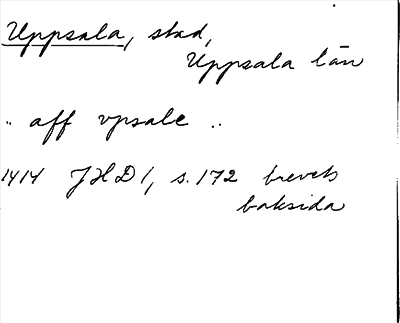 Uppsala, stad,
Uppsala län
.. aff vpsale ..
1414 JHD 1, s. 172 brevets
baksida